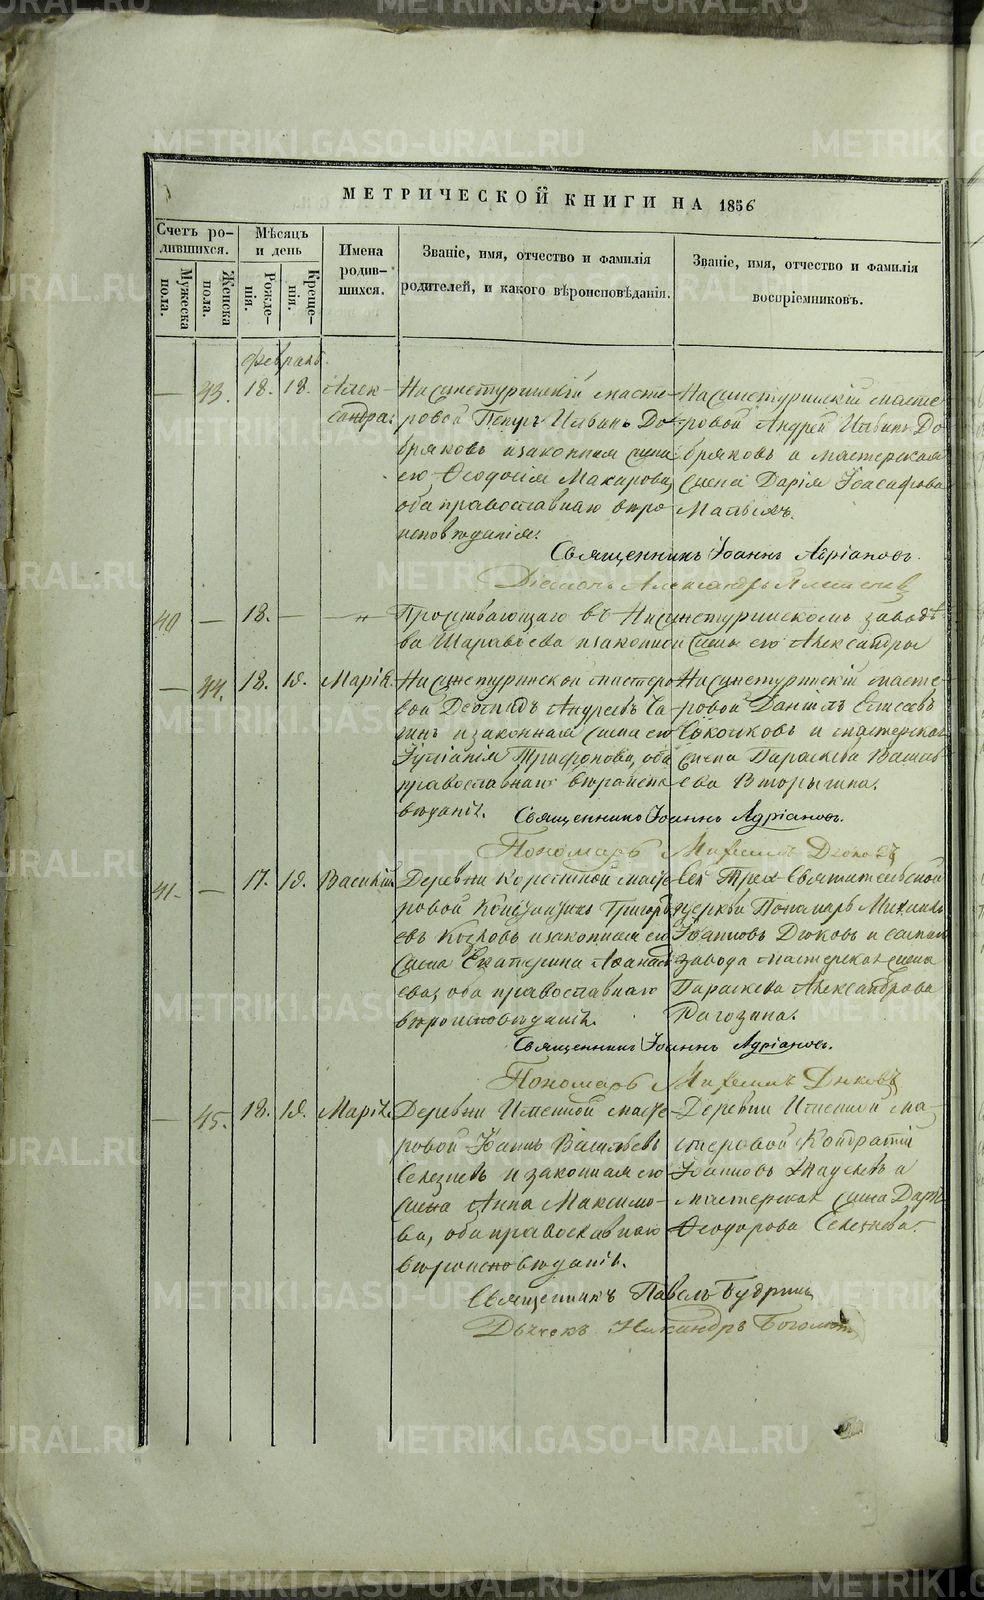 МЕТРИЧЕСКОЙ КНИГИ НА 1856
Счетъ ро-
дившихся.
Мужеска
пола.
Женска
пола.
Мѣсяцъ
и день
Рожде-
нія.
Креще-
нія.
Имена
родив-
шихся.
Званіе, имя, отчество и фамилія
родителей, и какого вѣроисповѣданія.
Званіе, имя, отчество и фамилія
воспріемниковъ.
февраль.
— 43. 18. 18. Алек-
сандра.
Нижнетуринскій масте-
ровой Петръ Ильинъ До-
бряковъ и законная жена
его Ѳеодосія Макарова,
оба православнаго вѣро
исповѣданія.
Нижнетуринскій масте-
ровой Андрей Ильинъ До
бряковъ и мастерская
жена Дарія Іоасафова
Малыхъ.
Священникъ Іоаннъ Адріановъ.
Діаконъ Александръ
40 — 18. — — „
Проживающаго въ Нижнетуринскомъ заводѣ
и законной жены его Александры
— 44. 18. 19. Марія.
Нижнетуринской мастеро
вой Андреевъ
и законная жена его
Іуліанія Трифонова, оба
православнаго вѣроиспо
вѣданія.
Нижнетуринскій масте-
ровой Даніилъ Елисеевъ
и мастерская
жена Параскева Василь
ева Вторыгина.
Священникъ Іоаннъ Адріановъ.
Пономарь Михаилъ Дюковъ
41. — 17. 19. Василій
Деревни маст
ровой Григорь
евъ и законная его
жена Екатерина Аѳанась
ева, оба православнаго
вѣроисповѣданія.
Сей Трех-Святительской
церкви Пономарь Михаилъ
Іоанновъ Дюковъ и
завода мастерская жена
Параскева Александрова
Рагозина.
Священникъ Іоаннъ Адріановъ.
Пономарь Михаилъ Дюковъ
— 45. 18. 19. Марія.
Деревни маст
ровой Іоаннъ Васильевъ
Селезневъ и законная его
жена Анна Максимо-
ва, оба православнаго
вѣроисповѣданія.
Деревни ма-
стеровой Кондратій
Іоанновъ и
мастерская жена Дарья
Ѳеодорова Селезнева.
Священникъ Павелъ Будринъ
Дьячекъ Никандръ
METRIKI.GASO-URAL.RU